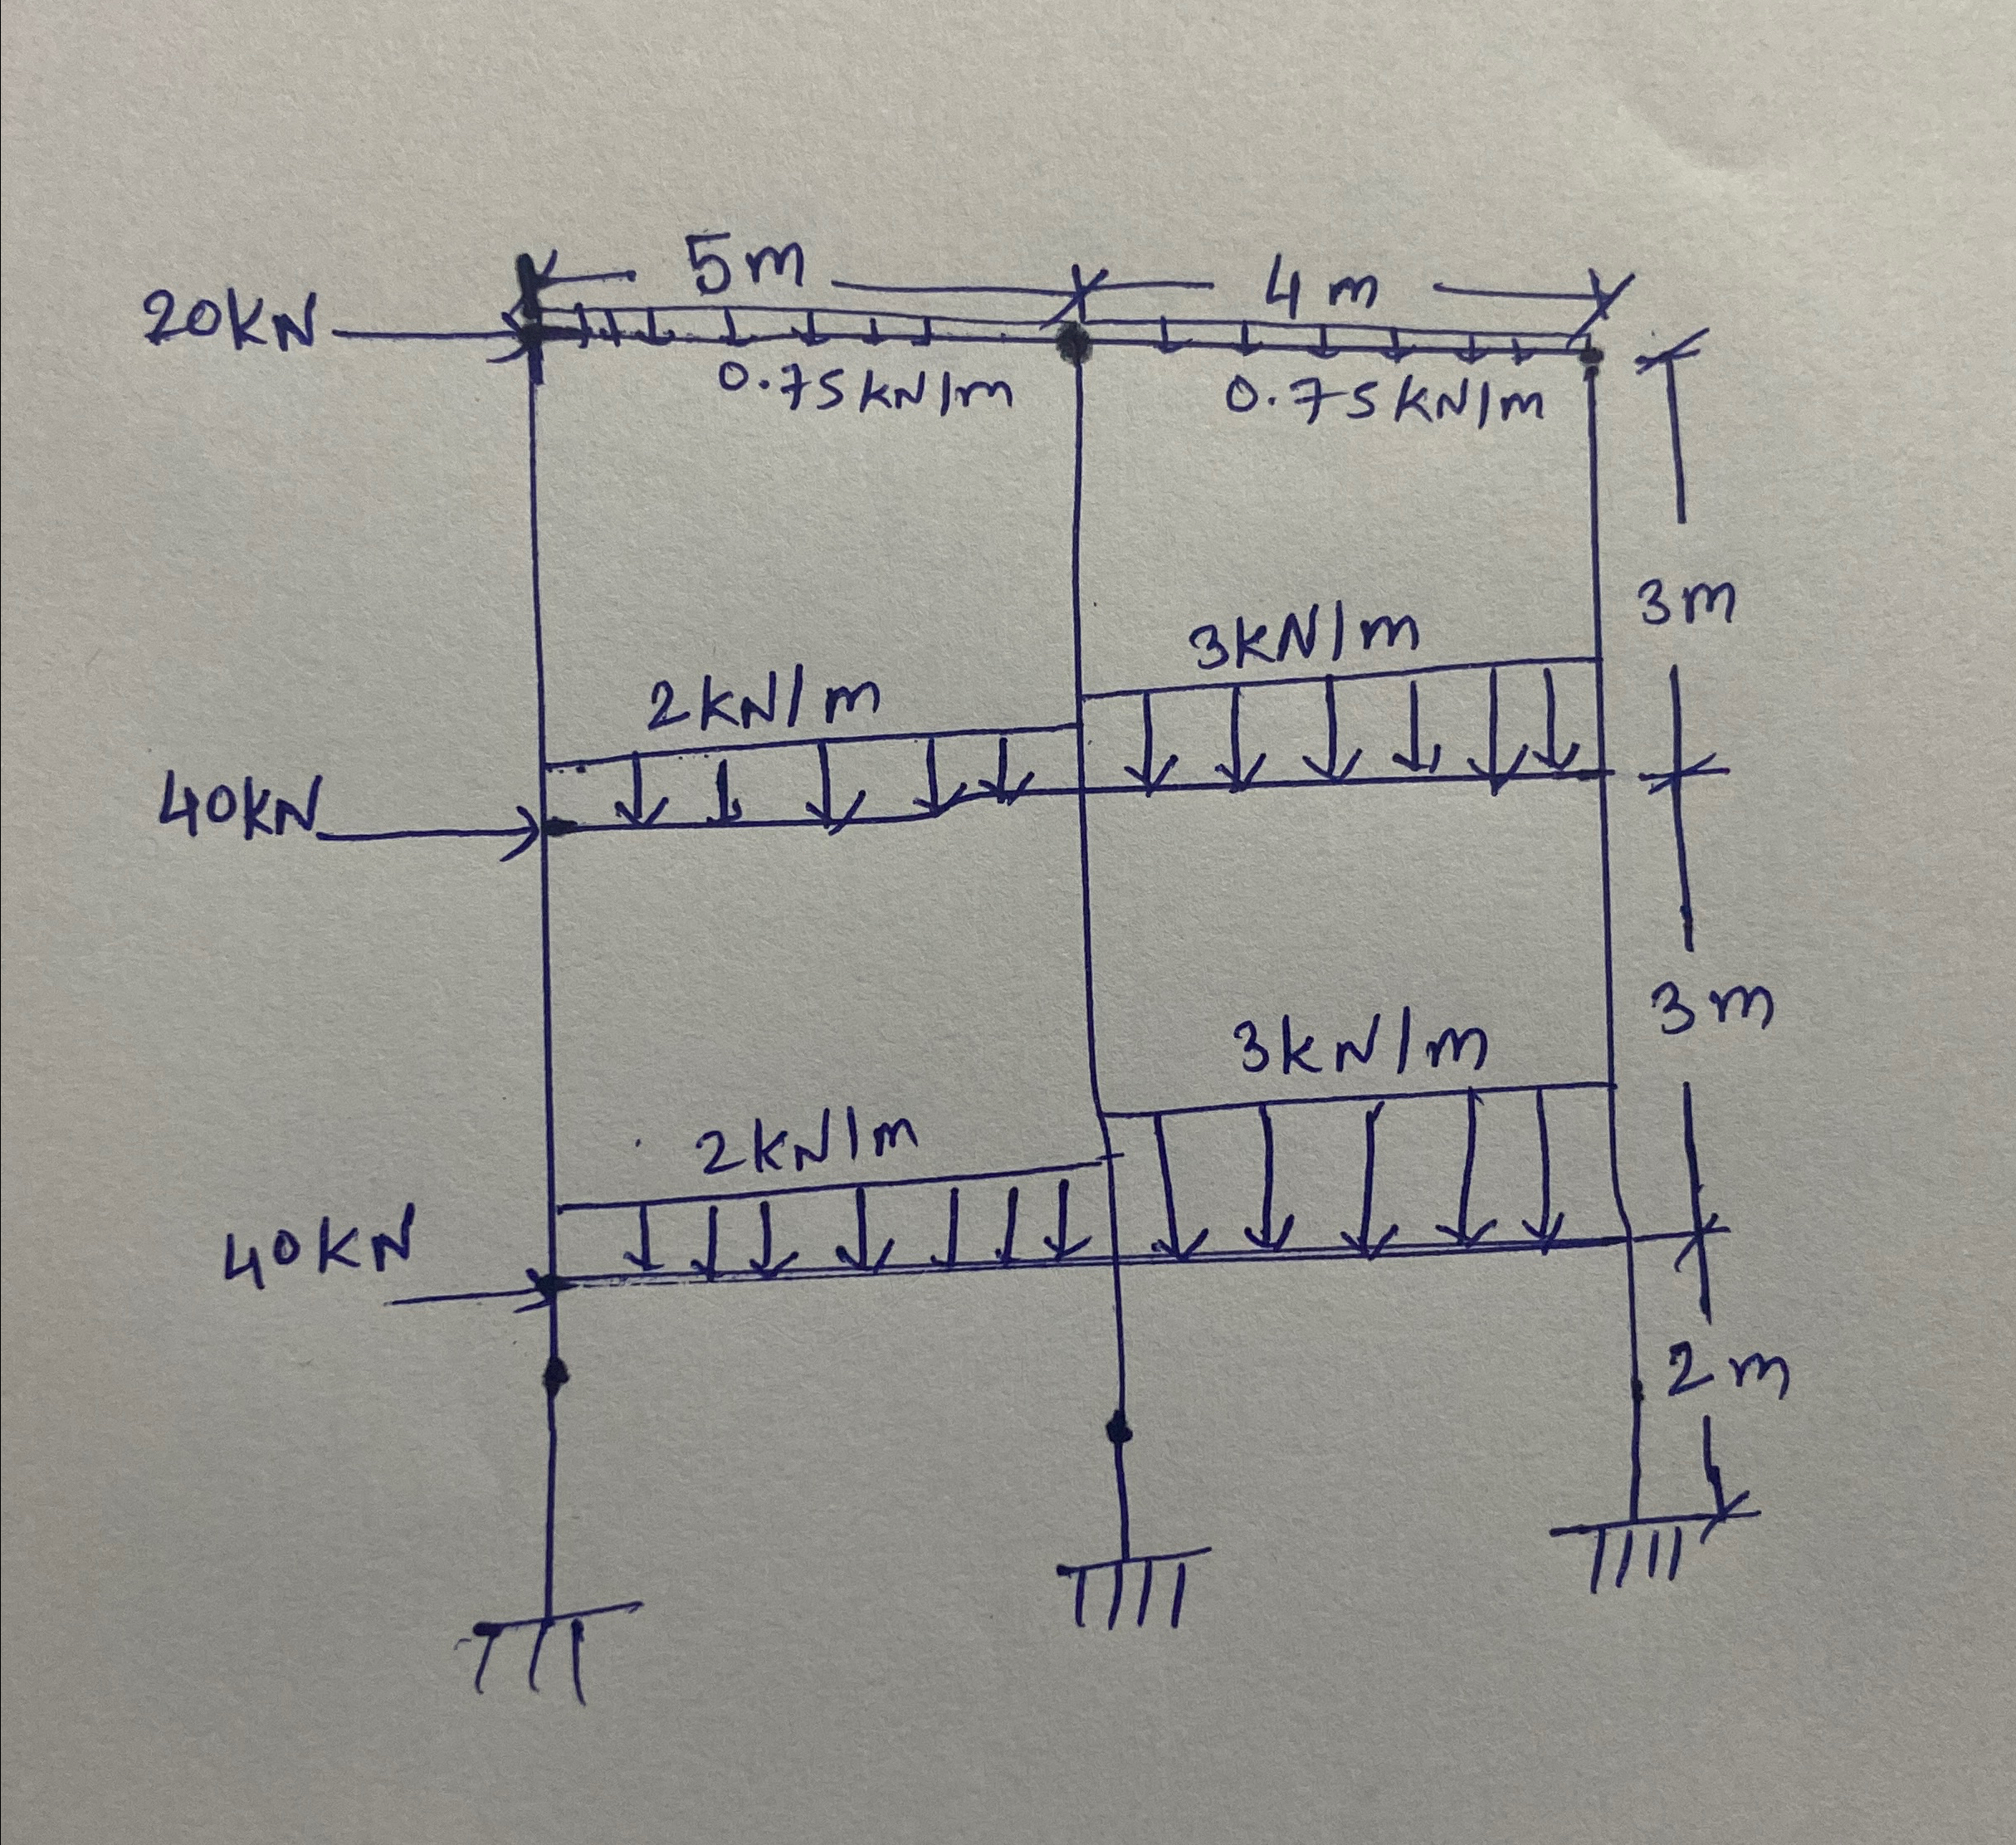 5m
4m
20KN
0.75KN/m
0.75KN/m
3m
3KN/m
2KN/m
40KN
3m
3KN/m
2KN/m
40KN
2m